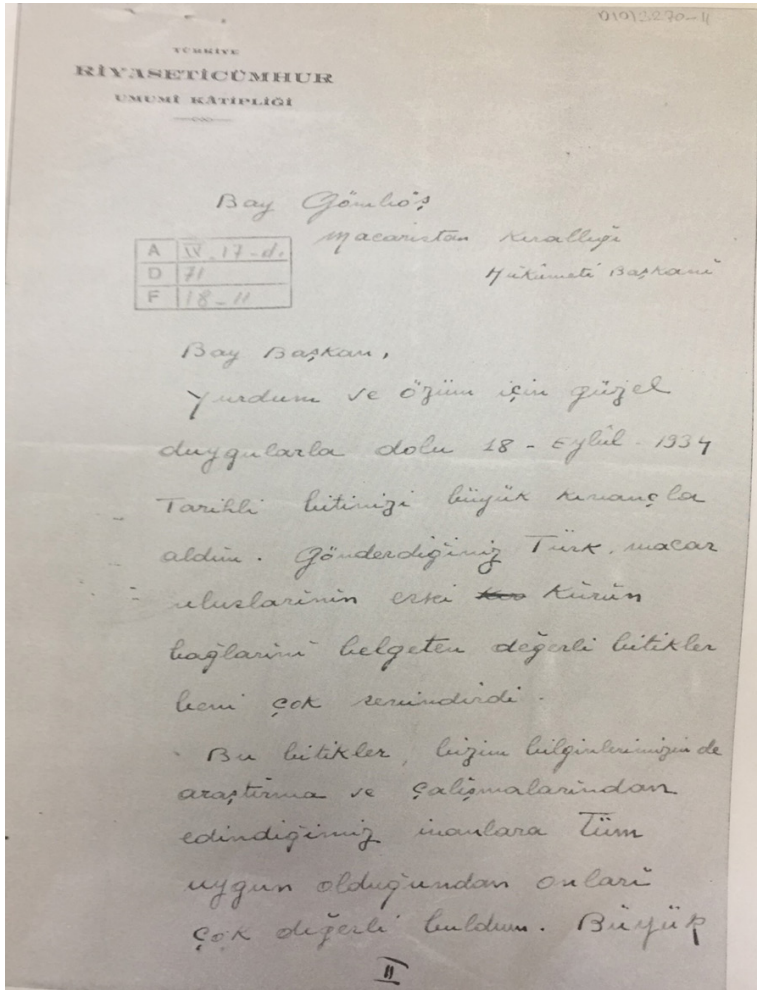 01013270-11
TÜRKİYE
RİYASETİCÜMHUR
UMUMÎ KÂTİPLİĞİ
Bay Gömböş
Macaristan Kırallığı
Hükûmeti Başkanı
A IV. 17-d.
D 71
F 18-11
Bay Başkan,
Yurdum ve özüm için güzel
duygularla dolu 18 - Eylûl - 1934
Tarihli bitiğizi büyük kıvançla
aldım. Gönderdiğiniz Türk, macar
uluslarının eski Kürün
bağlarını belgeten değerli bitikler
beni çok sevindirdi.
Bu bitikler, bizim bilginlerimizin de
araştırma ve çalışmalarından
edindiğimiz inanlara Tüm
uygun olduğundan onları
çok değerli buldum. Büyük
II